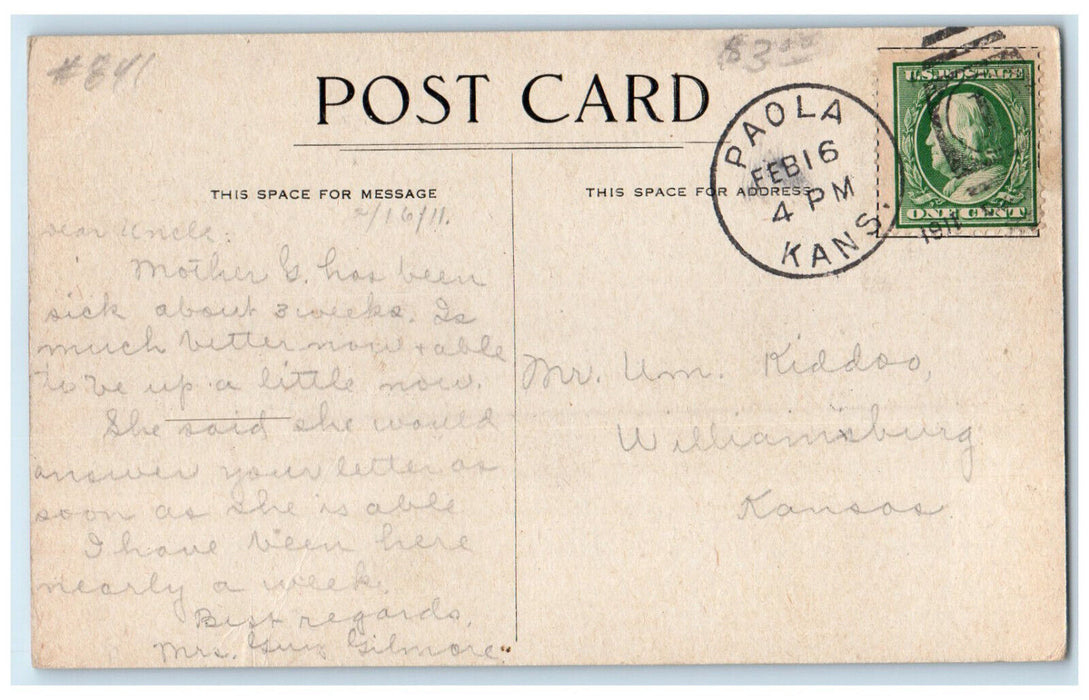 #841
$3.00
POST CARD
THIS SPACE FOR MESSAGE
THIS SPACE FOR ADDRESS
PAOLA
FEB 16
4 PM
KANS.
1911
U.S. POSTAGE
ONE CENT
2/16/11.
Dear Uncle:
Mother G. has been
sick about 3 weeks. Is
much better now + able
to be up a little now.
She said she would
answer your letter as
soon as she is able
I have been here
nearly a week.
Best regards,
Mrs. Guy Gilmore.
Mr. Wm. Kiddoo,
Williamsburg
Kansas.